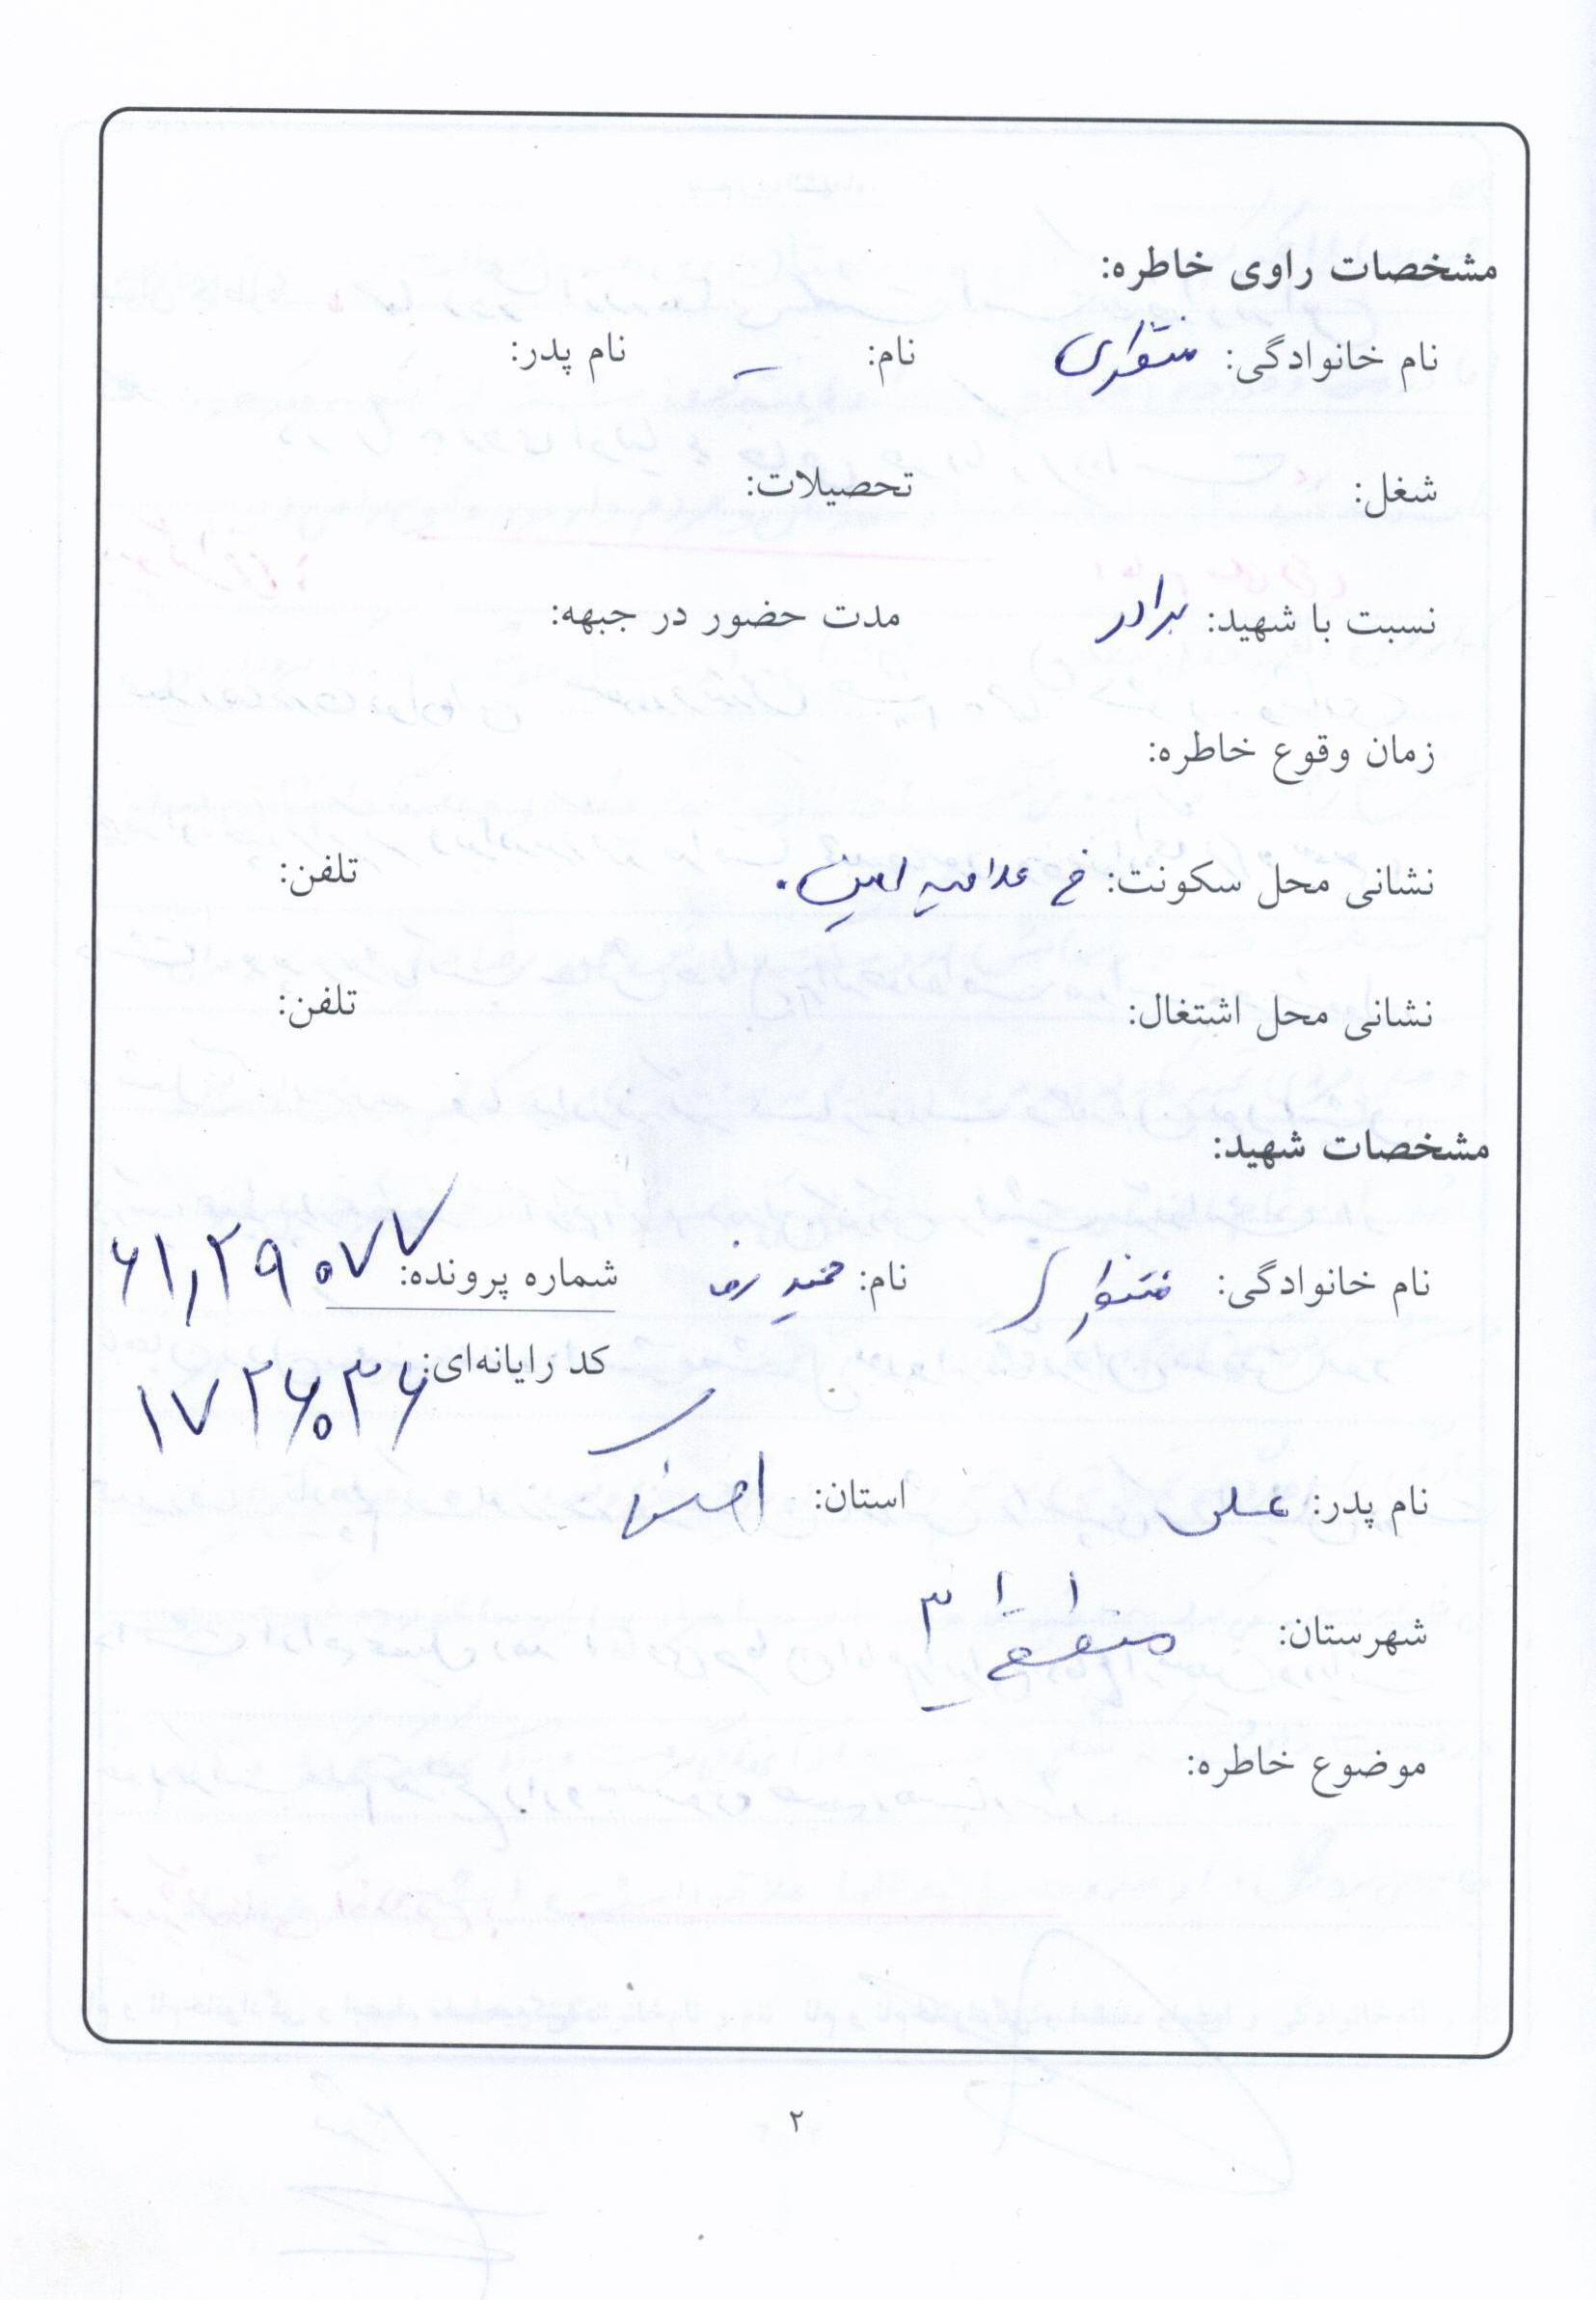 مشخصات راوی خاطره:
نام خانوادگی: نام: – نام پدر:
شغل: تحصیلات:
نسبت با شهید: برادر مدت حضور در جبهه:
زمان وقوع خاطره:
نشانی محل سکونت: خ علامه امینی. تلفن:
نشانی محل اشتغال: تلفن:
مشخصات شهید:
نام خانوادگی: نام: حمیدرضا شماره پرونده: ۶۱,۲۹۰۷۷
کد رایانه‌ای: ۱۷۲۶۰۳۶
نام پدر: علی استان: اصفهان
شهرستان: منطقه ۳
موضوع خاطره:
۲